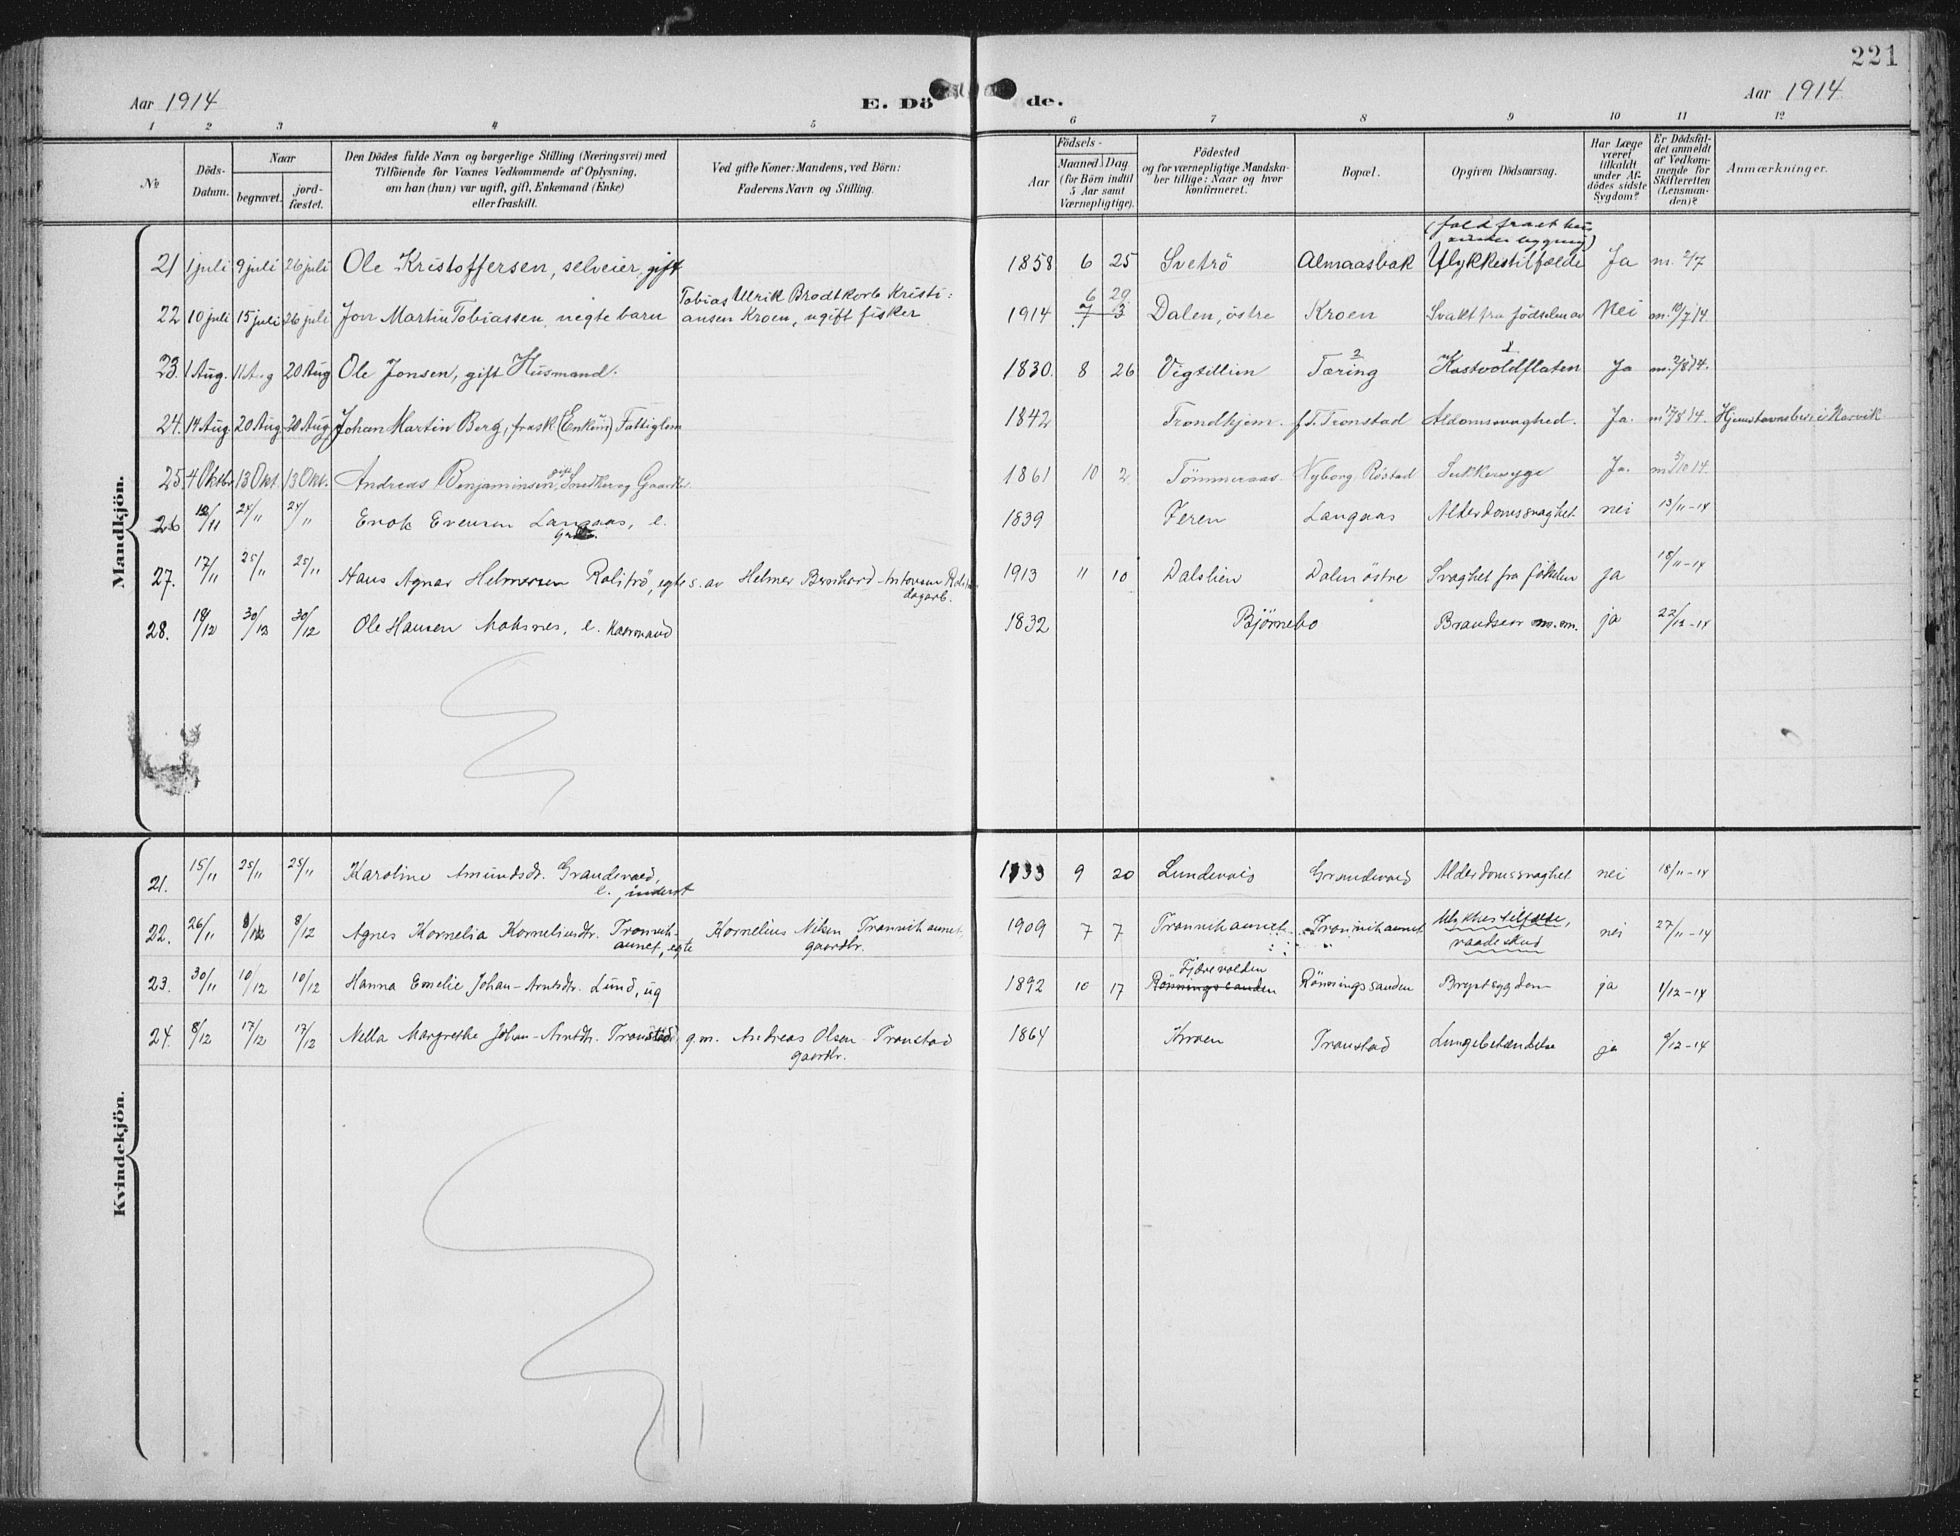 221
Aar 1914
E. Döde.
Aar 1914
1 2 3 4 5 6 7 8 9 10 11 12
№
Döds-Datum.
Naar
begravet.
jord-fæstet.
Den Dödes fulde Navn og borgerlige Stilling (Næringsvei) med
Tilföiende for Voxnes Vedkommende af Oplysning,
om han (hun) var ugift, gift, Enkemand (Enke)
eller fraskilt.
Ved gifte Koner: Mandens, ved Börn:
Faderens Navn og Stilling.
Födsels-
Aar
Maaned Dag
(for Börn indtil
5 Aar samt
Værnepligtige).
Födested
og for værnepligtige Mandska-
ber tillige: Naar og hvor
konfirmeret.
Bopæl.
Opgiven Dödsaarsag.
Har Læge
været
tilkaldt
under Af-
dödes sidste
Sygdom?
Er Dödsfal-
det anmeldt
af Vedkom-
mende for
Skifteretten
(Lensman-
den)?
Anmærkninger.
Mandkjön.
21 1 juli 9 juli 26 juli Ole Kristoffersen, selveier, gift 1858 6 25 Svetrö Almaasbak Ulykkestilfælde Ja m. 2/7
22 10 juli 15 juli 26 juli Jon Martin Tobiassen, uegte barn Tobias Ulrik Brodtkorb Kristi:
ansen Kroen, ugift fisker 1914 6 29 7 3 Dalen, östre Kroen Svakt fra födselen av Nei m. 10/7 14
23. 1 Aug. 11 Aug 20 Aug Ole Jonsen, gift Husmand. 1830. 8 26 Vigtillien 2 Tæring 1 Hastvoldflaten Ja m. 2/8 14.
24. 14 Aug 20 Aug 20 Aug Johan Martin Berg, frask. (Enkem) Fattiglem 1842 Trondhjem. f. T. Tronstad Aldomssvaghed. Ja. m 17/8 14. i Narvik
25 4 Oktbr 13 Okt 13 Okt. Andreas Benjaminsen, gift Snedker og Gaardbr. 1861 10 2 Tömmeraas Nyborg, Röstad Sukkersyge Ja. m 5/10 14.
26 12/11 24/11 24/11 Enok Evensen Langaas, e. 1839 Veren Langaas Alderdomssvaghet nei 13/11-14
27. 17/11 25/11 25/11 Hans Agnar Helmersen Rolitrö, egte s. av Helmer Bernhard Antonsen
dagarb. 1913 11 10 Dalslien Dalen östre Svaghet fra födselen ja 18/11-14
28. 18/12 30/12 30/12 Ole Hansen Moksnes, e. Kaarmand 1832 Björnebo Brandsaar m.m. ja 22/12-14
Kvindekjön.
21. 15/11 25/11 25/11 Karoline Amundsdr. Grandevold,
e. inderst 1833 9 20 Lundevais Grandevold Alderdomssvaghet nei 18/11-14
22. 26/11 8/12 8/12 Agnes Kornelia Korneliusdr. Tronvik-
aunet, egte Kornelius Nilsen Tronvikaunet,
gaardbr. 1909 7 7 Tronvikaunet Tronvikaunet Ulykkestilfælde,
vaadeskud nei 27/11-14
23. 30/11 10/12 10/12 Hanna Emelie Johan-Arntsdr. Lund, ug 1892 10 17 Fjærevolden
Rönningssanden Rönningssanden Brystsygdom ja 1/12-14
24. 8/12 17/12 17/12 Nella Margrethe Johan-Arntsdr. Tronstad, g.m. Andreas Olsen Tronstad
gaardbr. 1864 Kroen Tronstad Lungebetændelse ja 9/12-14